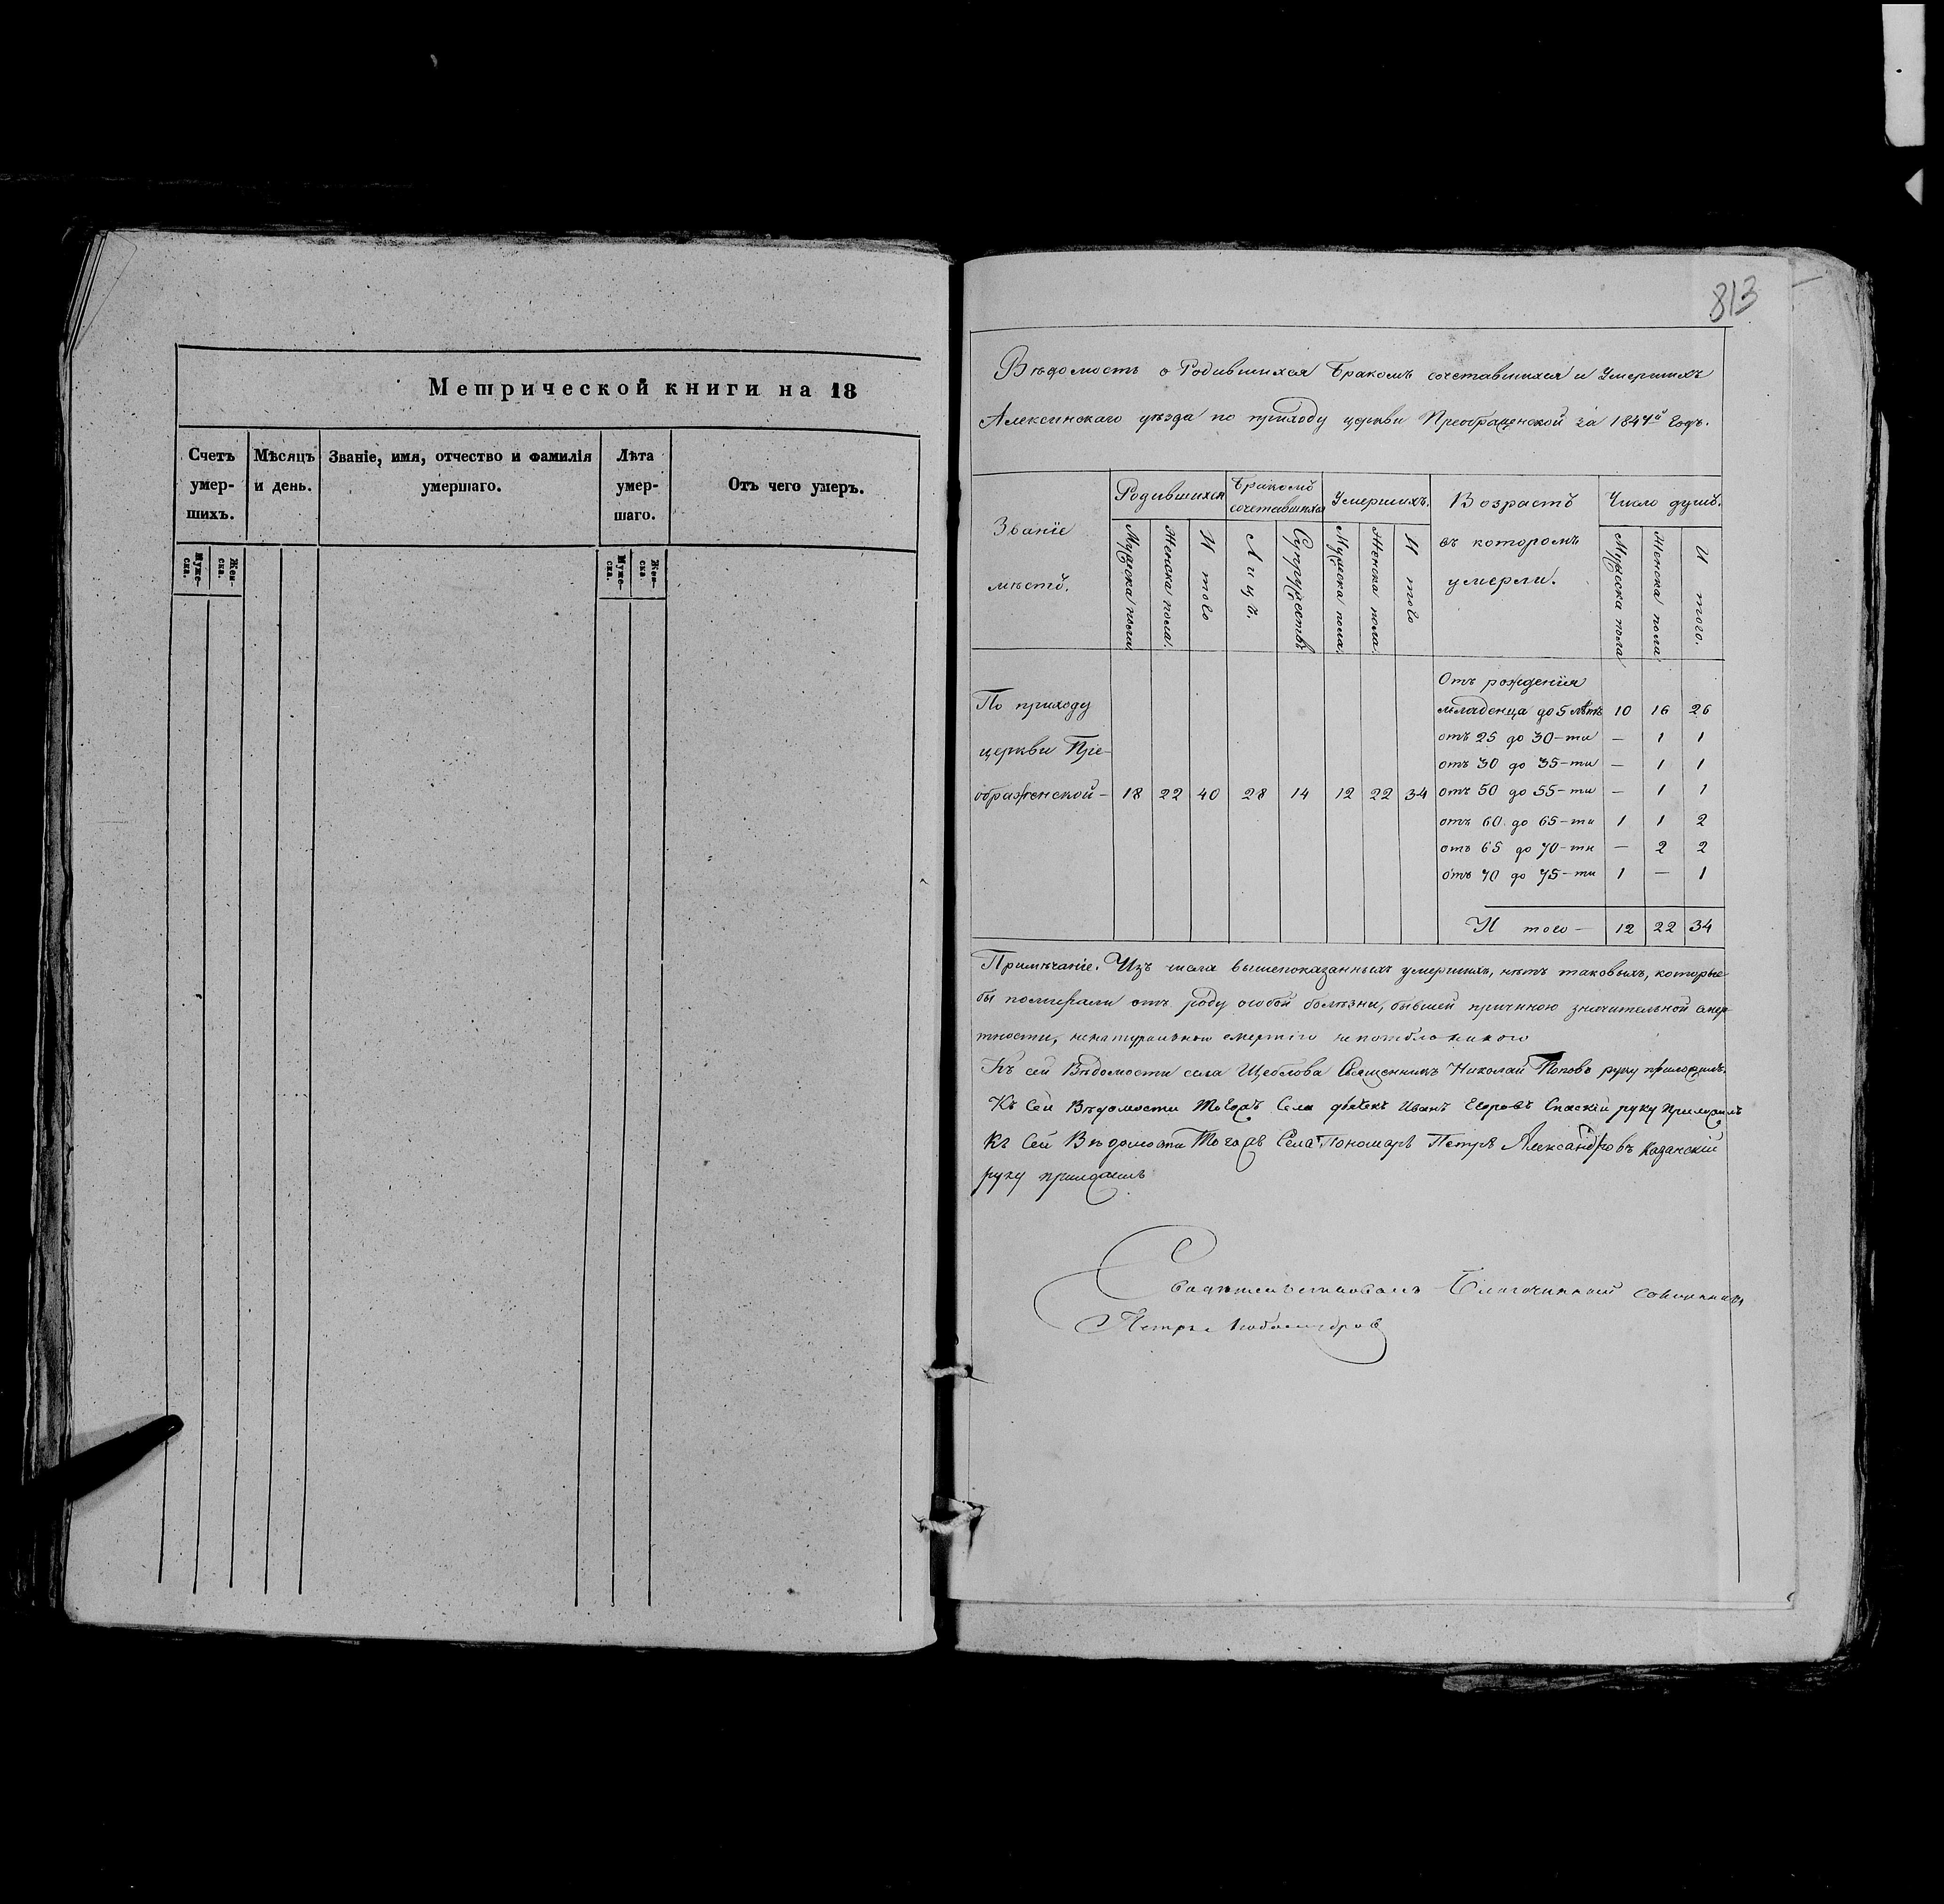 Метрической книги на 18
Счетъ умер-шихъ.
Мѣсяцъ и день.
Званіе, имя, отчество и фамилія умершаго.
Лѣта умер-шаго.
Отъ чего умеръ.
Муже-ска.
Жен-ска.
Муже-ска.
Жен-ска.
813
Вѣдомость о Родившихся Бракомъ сочетавшихся и Умершихъ
Алексинскаго уѣзда по приходу церкви Преображенской за 1847й Годъ.
Званіе мѣстъ.
Родившихся
Бракомъ сочетавшихся
Умершихъ.
Возрастъ въ которомъ умерли.
Число душъ.
Мужеска пола
Женска пола.
И того
Лицъ.
Супружествъ
Мужеска пола.
Женска пола.
И того
Мужеска пола
Женска пола
И того.
Отъ рожденія
По приходу младенца до 5 лѣтъ 10 16 26
отъ 25 до 30-ти — 1 1
церкви Пре-
отъ 30 до 35-ти — 1 1
ображенской — 18 22 40 28 14 12 22 34 отъ 50 до 55-ти — 1 1
отъ 60 до 65-ти 1 1 2
отъ 65 до 70-ти — 2 2
отъ 70 до 75-ти 1 — 1
И того — 12 22 34
Примѣчаніе. Изъ числа вышепоказанныхъ умершихъ, нѣтъ таковыхъ, которые
бы помирали отъ роду особой болѣзни, бывшей причиною значительной смер-
тности, ненатуральною смертію
Къ сей Вѣдомости села Щеблова Священникъ Николай Поповъ руку приложилъ.
Къ Сей Вѣдомости Тогожъ Села дьячекъ Иванъ Егоровъ Спаскій руку приложилъ
Къ Сей Вѣдомости Тогожъ Села Пономарь Петръ Александровъ Казанскій
руку приложилъ
Свидѣтельствовалъ Благочинный Священникъ
Петръ